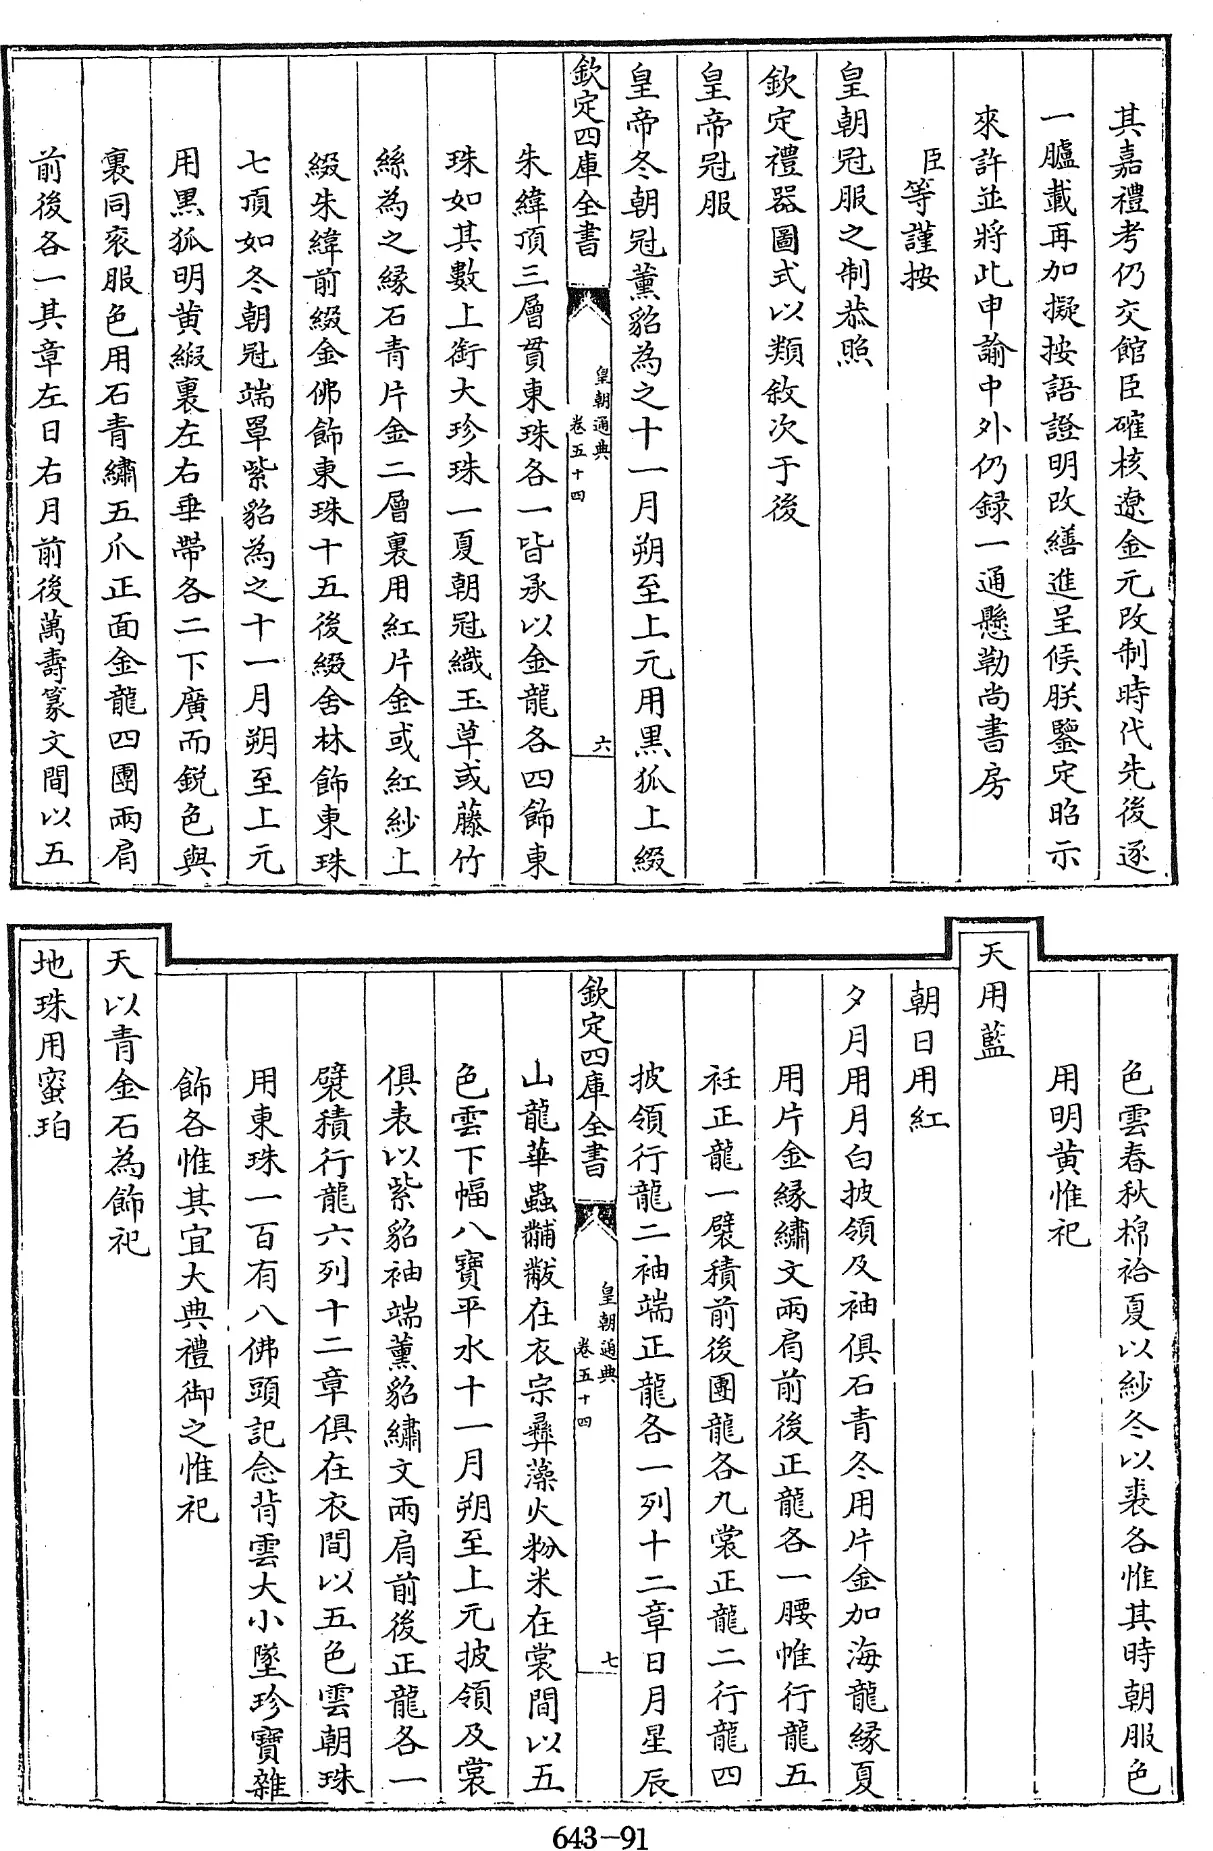 其嘉禮考仍交館臣確核遼金元改制時代先後逐
一臚載再加擬按語證明改繕進呈候朕鑒定昭示
來許並將此申諭中外仍録一通懸勒尚書房
臣等謹按
皇朝冠服之制恭照
欽定禮器圖式以類敘次于後
皇帝冠服
皇帝冬朝冠薰貂為之十一月朔至上元用黑狐上綴
欽定四庫全書
皇朝通典
卷五十四
六
朱緯頂三層貫東珠各一皆承以金龍各四飾東
珠如其數上銜大珍珠一夏朝冠織玉草或藤竹
絲為之緣石青片金二層裏用紅片金或紅紗上
綴朱緯前綴金佛飾東珠十五後綴舍林飾東珠
七頂如冬朝冠端罩紫貂為之十一月朔至上元
用黑狐明黄緞裏左右垂帶各二下廣而銳色與
裏同衮服色用石青繡五爪正面金龍四團兩肩
前後各一其章左日右月前後萬壽篆文間以五
色雲春秋棉袷夏以紗冬以裘各惟其時朝服色
用明黄惟祀
天用藍
朝日用紅
夕月用月白披領及袖俱石青冬用片金加海龍緣夏
用片金緣繡文兩肩前後正龍各一腰帷行龍五
衽正龍一襞積前後團龍各九裳正龍二行龍四
披領行龍二袖端正龍各一列十二章日月星辰
欽定四庫全書
皇朝通典
卷五十四
七
山龍華蟲黼黻在衣宗彝藻火粉米在裳間以五
色雲下幅八寶平水十一月朔至上元披領及裳
俱表以紫貂袖端薰貂繡文兩肩前後正龍各一
襞積行龍六列十二章俱在衣間以五色雲朝珠
用東珠一百有八佛頭記念背雲大小墜珍寶雜
飾各惟其宜大典禮御之惟祀
天以青金石為飾祀
地珠用蜜珀
643-91